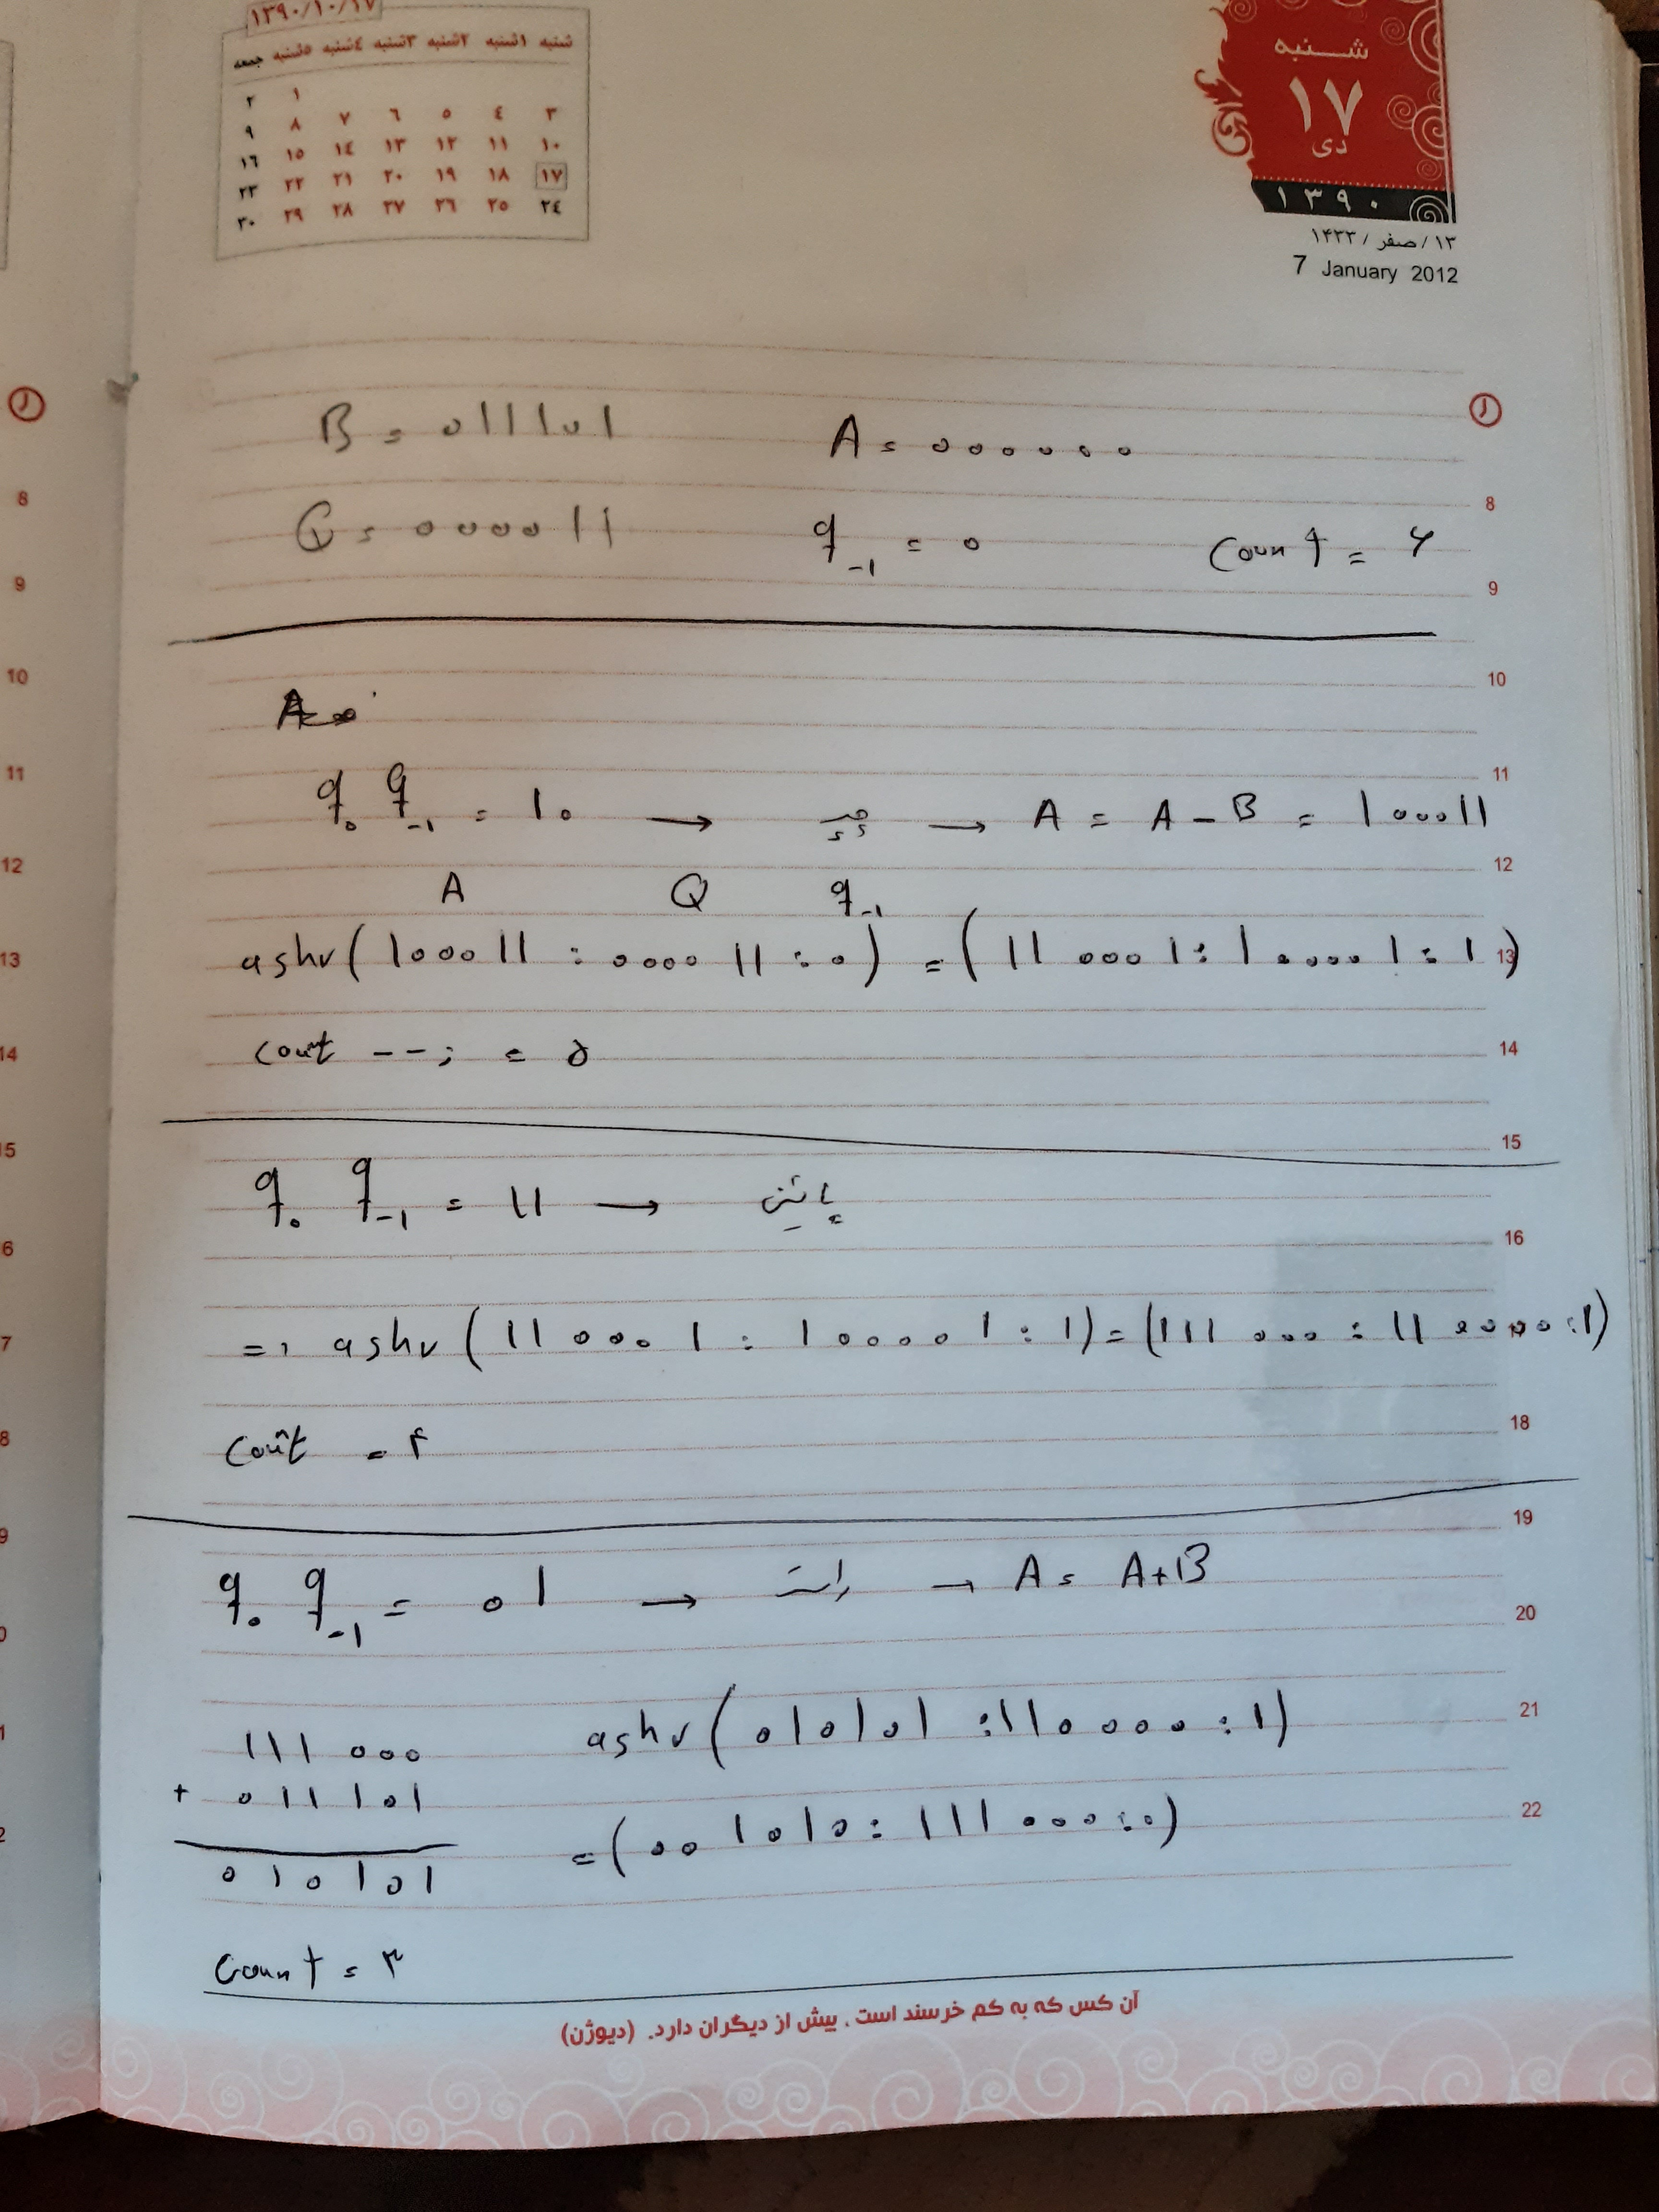 ۱۳۹۰/۱۰/۱۷
شنبه ۱شنبه ۲شنبه ۳شنبه ٤شنبه ۵شنبه جمعه
۱ ۲
۳ ٤ ۵ ٦ ۷ ۸ ۹
۱۰ ۱۱ ۱۲ ۱۳ ۱٤ ۱۵ ۱٦
۱۷ ۱۸ ۱۹ ۲۰ ۲۱ ۲۲ ۲۳
۲٤ ۲۵ ۲٦ ۲۷ ۲۸ ۲۹ ۳۰
شنبه
۱۷
دی
۱۳۹۰
۱۳/صفر/۱۴۳۳
7 January 2012
B = 011101 A = 000000
8
Q = 000011 q-1 = 0 Count = ۶
9
10
11
q0 q-1 = 10 → چپ → A = A - B = 100011
12
A Q q-1
ashr(100011 : 000011 : 0) = (110001 : 100001 : 1)
13
Count --; = ۵
14
15
q0 q-1 = 11 → پائین
16
=> ashr(110001 : 100001 : 1) = (111000 : 110000 : 1)
Count = ۴
18
19
q0 q-1 = 01 → راست → A = A+B
20
111000 ashr(010101 : 110000 : 1)
21
+ 011101
22
= (001010 : 111000 : 0)
010101
Count = ۳
آن کس که به کم خرسند است، بیش از دیگران دارد. (دیوژن)